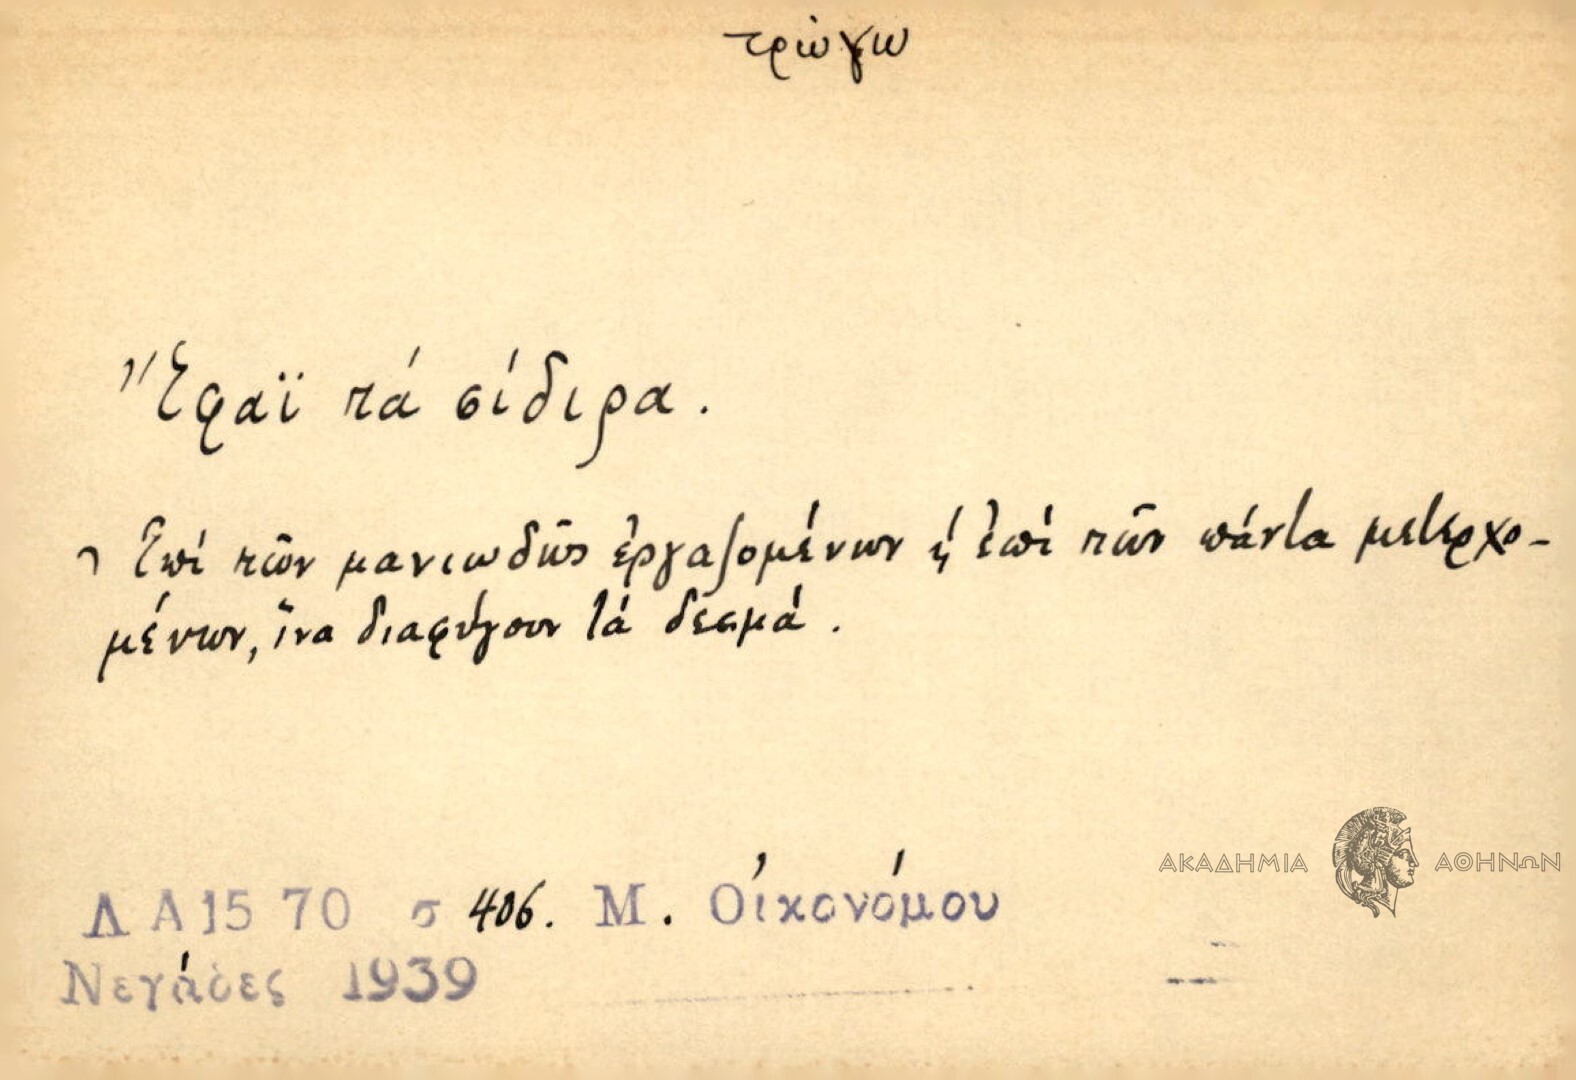 τρώγω
Ἔφαϊ τά σίδιρα.
Ἐπί τῶν μανιωδῶς ἐργαζομένων ἤ ἐπί τῶν πάντα μετερχο-
μένων, ἵνα διαφύγουν τά δεσμά.
ΑΚΑΔΗΜΙΑ ΑΘΗΝΩΝ
Λ Α 15 70 σ 406. Μ. Οἰκονόμου
Νεγάδες 1939